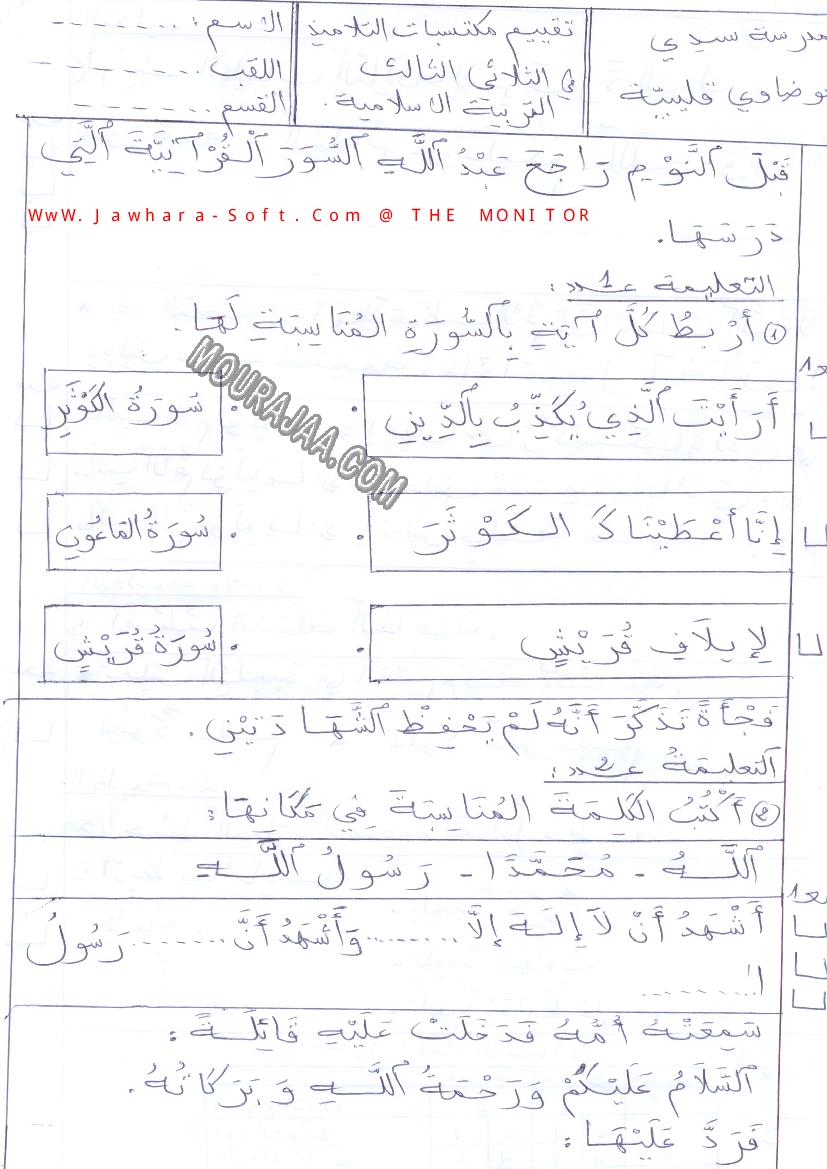 مدرسة سيدي
بوضاوي قليبية
تقييم مكتسبات التلاميذ
في الثلاثي الثالث
التربية الاسلامية.
الاسم: .......
اللقب ........
القسم ........
قَبْلَ ٱلنَّوْمِ رَاجَعَ عَبْدُ ٱللَّهِ ٱلسُّوَرَ ٱلْقُرْآنِيَّةَ ٱلَّتِي
WwW.Jawhara-Soft.Com @ THE MONITOR
دَرَسَهَا.
التعليمة عدد 1:
① أَرْبِطُ كُلَّ آيَةٍ بِٱلسُّورَةِ المُنَاسِبَةِ لَهَا.
MOURAJAA.COM
مع1
أَرَأَيْتَ ٱلَّذِي يُكَذِّبُ بِٱلدِّينِ . . سُورَةُ الكَوْثَرِ
إِنَّا أَعْطَيْنَاكَ الكَوْثَرَ . . سُورَةُ المَاعُونِ
لِإِيلَافِ قُرَيْشٍ . . سُورَةُ قُرَيْشٍ
فَجْأَةً تَذَكَّرَ أَنَّهُ لَمْ يَحْفِظْ ٱلشَّهَادَتِيْنِ.
ٱلتعليمَةُ عدد 2:
② أَكْتُبُ الكَلِمَةَ المُنَاسِبَةَ فِي مَكَانِهَا:
ٱللَّهُ - مُحَمَّدًا - رَسُولُ ٱللَّهِ
مع1
أَشْهَدُ أَنْ لاَ إِلَهَ إِلاَّ ......... وَأَشْهَدُ أَنَّ ........ رَسُولُ
ا .........
سَمِعَتْهُ أُمُّهُ فَدَخَلَتْ عَلَيْهِ قَائِلَةً:
ٱلسَّلاَمُ عَلَيْكُمْ وَرَحْمَةُ ٱللَّهِ وَبَرَكَاتُهُ.
فَرَدَّ عَلَيْهَا: